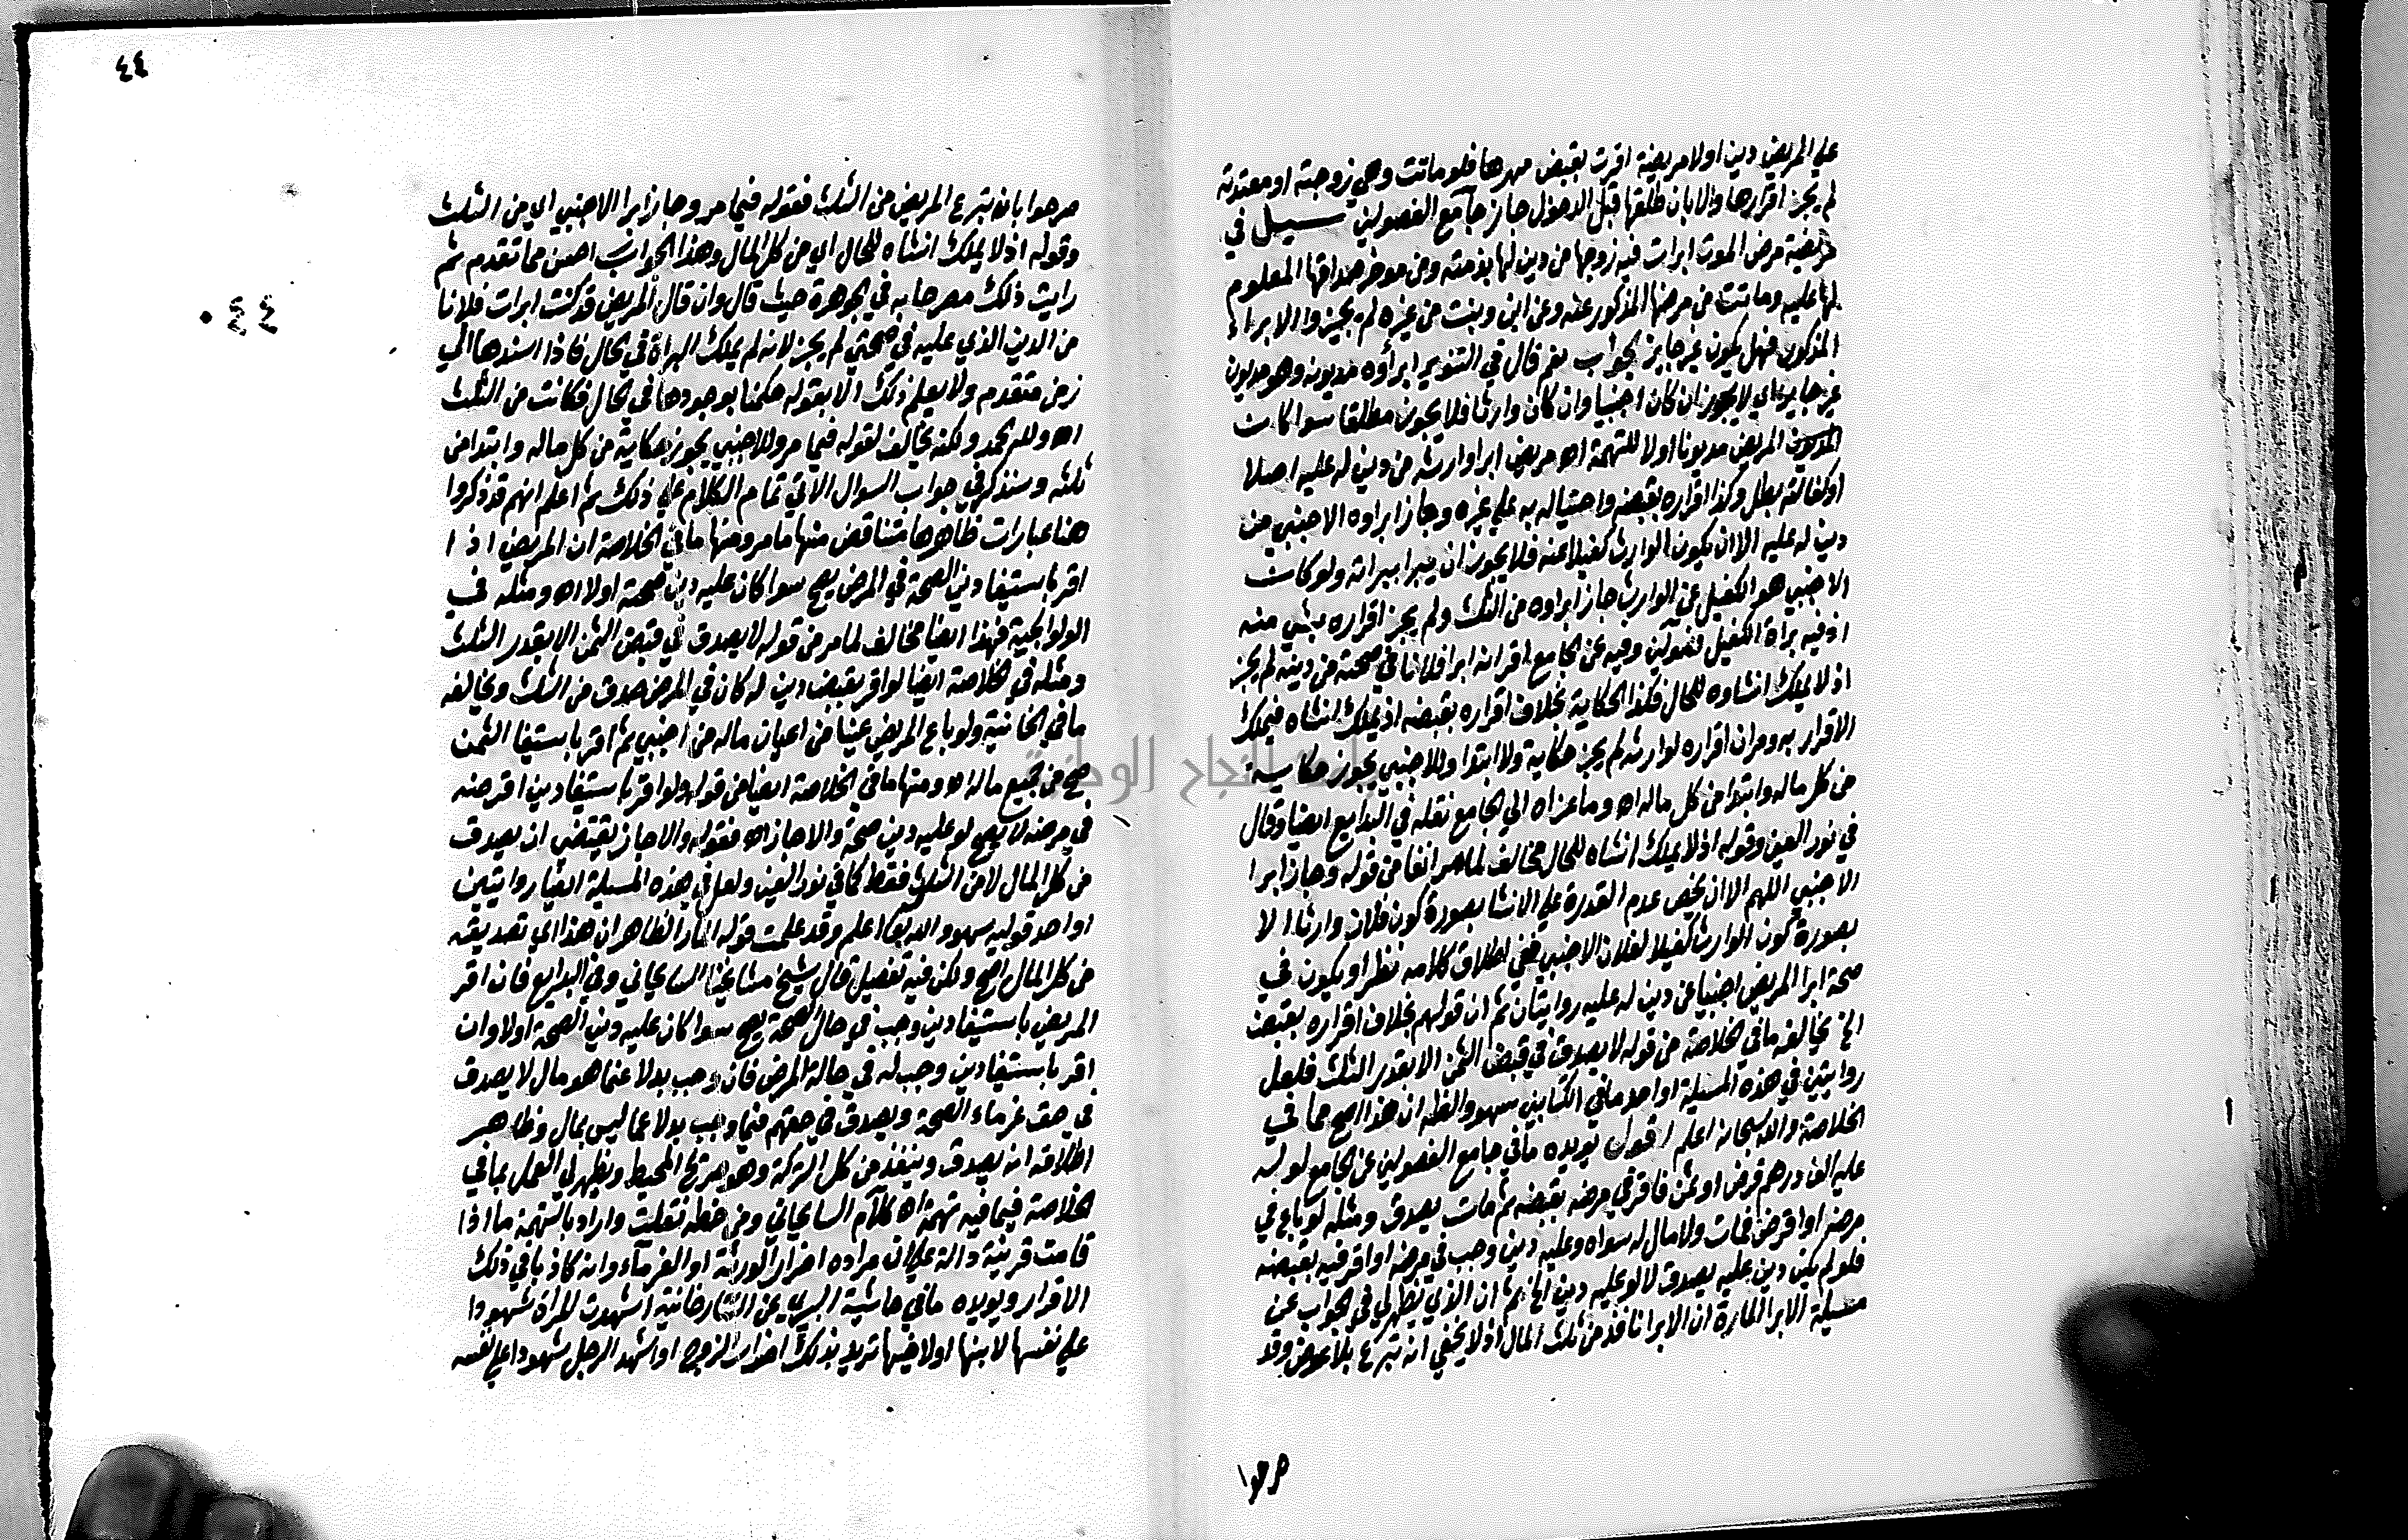 علي المريض دين اولا مريضة اقرت بقبض مهرها فلو ماتت وهي زوجته او معتدته
لم يجز اقرارها والا بان طلقها قبل الدخول جاز جامع الفصولين سيل في
مريضة مرض الموت ابرات فيه زوجها من دين لها بذمته ومن موخر صداقها المعلوم
لها عليه وماتت من مرضها المذكور عنه وعن ابن وبنت من غيره لم يجيزوا الابراء
المذكور فهل يكون غير جايز الجواب نعم قال في التنوير ابراؤه مديونه وهو مديون
غير جايز اي لا يجوز ان كان اجنبيا وان كان وارثا فلا يجوز مطلقا سوا كان
المديون المريض مديونا اولا للتهمة اه مريض ابرا وارثه من دين له عليه اصلا
او كفالة بطل وكذا اقراره بقبضه واحتياله به علي غيره وجاز ابراوه الاجنبي من
دين له عليه الا ان يكون الوارث كفيلا عنه فلا يجوز ان يبرا ببراته ولو كان
الاجنبي هو الكفيل عن الوارث جاز ابراوه من الثلث ولم يجز اقراره بشي منه
اذ فيه براة الكفيل فصولين وفيه عن الجامع اقر انه ابرا فلانا في صحته من دينه لم يجز
اذ لا يملك انشاوه للحال فكذا الحكاية بخلاف اقراره بقبضه اذ يملك انشاه فيملك
الاقرار به ومر ان اقراره لوارثه لم يجز حكاية ولا ابتدا وللاجنبي يجوز حكاية
من كل ماله وابتدا من كل ماله اه وما عزاه الي الجامع نقله في البدايع ايضا وقال
في نور العين وقوله اذ لا يملك انشاه للحال مخالف لما مر انفا من قوله وجاز ابرا
الاجنبي اللهم الا ان يخص عدم القدرة علي الانشا بصورة كون فلان وارثا الا
بصورة كون الوارث كفيلا لفلان الاجنبي ففي اطلاق كلامه نظر او يكون في
صحة ابرا المريض اجنبيا عن دين له عليه روايتان ثم ان قولهم بخلاف اقراره بقبض
الخ يخالفه ما في الخلاصة من قوله لا يصدق في قبض الثمن الا بقدر الثلث فلعل
روايتين في هذه المسيلة او احد ما في الكتابين سهو والظ ان هذا اصح مما في
الخلاصة والله سبحانه اعلم اقول يويده ما في جامع الفصولين عن الجامع لو له
عليه الف درهم قرض او ثمن فاقر في مرضه بقبضه ثم مات يصدق ومثله لو باع في
مرضه او اقرض فمات ولا مال له سواه وعليه دين وجب في مرضه او اقر فيه بقبضه
فلو لم يكن دين عليه يصدق لا لو عليه دين الخ ثم ان الذي يظهر لي في الجواب عن
مسيلة الابرا المارة ان الابرا نافذ من ثلث المال اذ لا يخفي انه تبرع بلا عوض وقد
صرحوا
٤٤
٤٤
صرحوا بانه تبرع المريض من الثلث فقوله فيما مر وجاز ابرا الاجنبي اي من الثلث
وقوله اذ لا يملك انشاه للحال اي من كل المال وهذا الجواب احسن مما تقدم ثم
رايت ذلك مصرحا به في الجوهرة حيث قال وان قال المريض قد كنت ابرات فلانا
من الدين الذي عليه في صحتي لم يجز لانه لم يملك البراة في الحال فاذا اسندها الي
زمن متقدم ولا يعلم ذلك الا بقوله حكمنا بوجودها في الحال فكانت من الثلث
اه ولله الحمد ولكنه يخالف لقوله فيما مر وللاجنبي يجوز حكاية من كل ماله وابتدا من
ثلثه وسنذكر في جواب السوال الاتي تمام الكلام علي ذلك ثم اعلم انهم قد ذكروا
هنا عبارات ظاهرها متناقض منها ما مر ومنها ما في الخلاصة ان المريض اذا
اقر باستيفا دين الصحة في المرض يصح سوا كان عليه دين صحة اولا اه ومثله في
الولوالجية فهذا ايضا مخالف لما مر من قوله لا يصدق في قبض الثمن الا بقدر الثلث
ومثله في الخلاصة ايضا لو اقر بقبض دين له كان في المرض صدق من الثلث ويخالفه
ما في الخانية ولو باع المريض عينا من اعيان ماله من اجنبي ثم اقر باستيفا الثمن
صح من جميع ماله اه ومنها ما في الخلاصة ايضا من قوله ولو اقر باستيفا دين اقرضه
في مرضه لا يصح لو عليه دين صحة والا جاز اه فقوله والا جاز يقتضي ان يصدق
من كل المال لا من الثلث فقط كما في نور العين ولعل في هذه المسيلة ايضا روايتين
او احد قوليه سهو والله تعالى اعلم وقد علمت قوله المار الظاهر ان هذا اي تصديقه
من كل المال اصح ولكن فيه تفصيل قال شيخ مشايخنا السايحاني وفي البدايع فان اقر
المريض باستيفا دين وجب في حال الصحة يصح سوا كان عليه دين الصحة اولا وان
اقر باستيفا دين وجب له في حالة المرض فان وجب بدلا عما هو مال لا يصدق
في حق غرماء الصحة ويصدق في حقهم فيما وجب بدلا عما ليس بمال وظاهر
اطلاقه انه يصدق وينفذ من كل التركة وهو صريح المحيط ويظهر لي العمل بما في
الخلاصة فيما فيه تهمة اه كلام السايحاني ومن خطه نقلت واراد بالتهمة ما اذا
قامت قرينة دالة علي ان مراده اضرار الورثة او الغرماء وانه كاذب في ذلك
الاقرار ويويده ما في حاشية البيري عن التتارخانية اشهدت المراة شهودا
علي نفسها لابنها او لاخيها تريد بذلك اضرار الزوج او اشهد الرجل شهودا علي نفسه